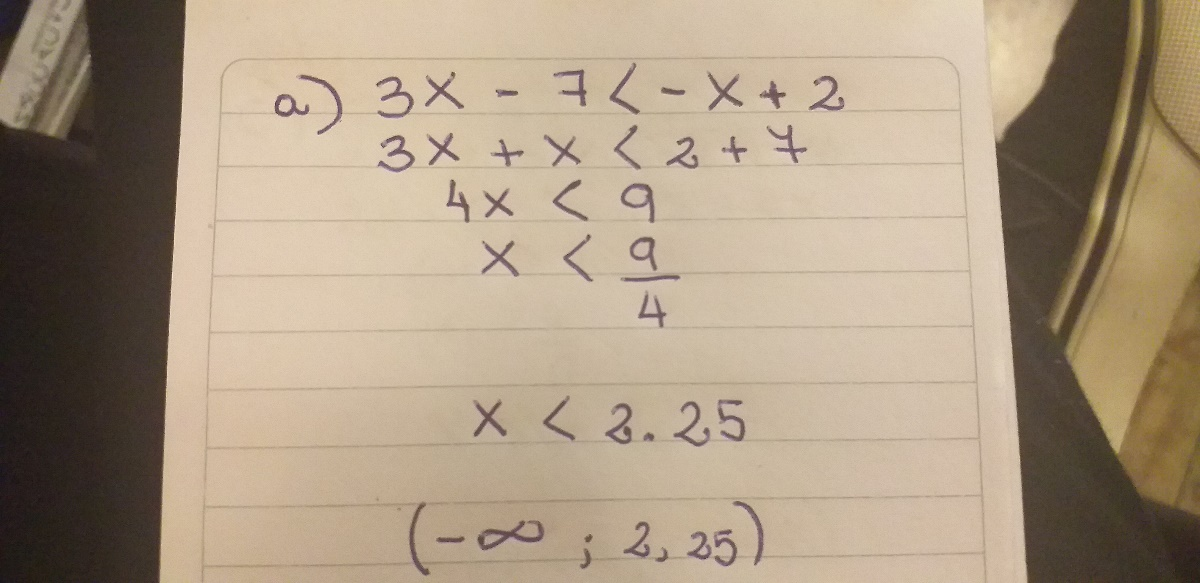 a) 3x - 7 < - x + 2
3x + x < 2 + 7
4x < 9
x < 9
4
x < 2.25
(-∞ ; 2,25)